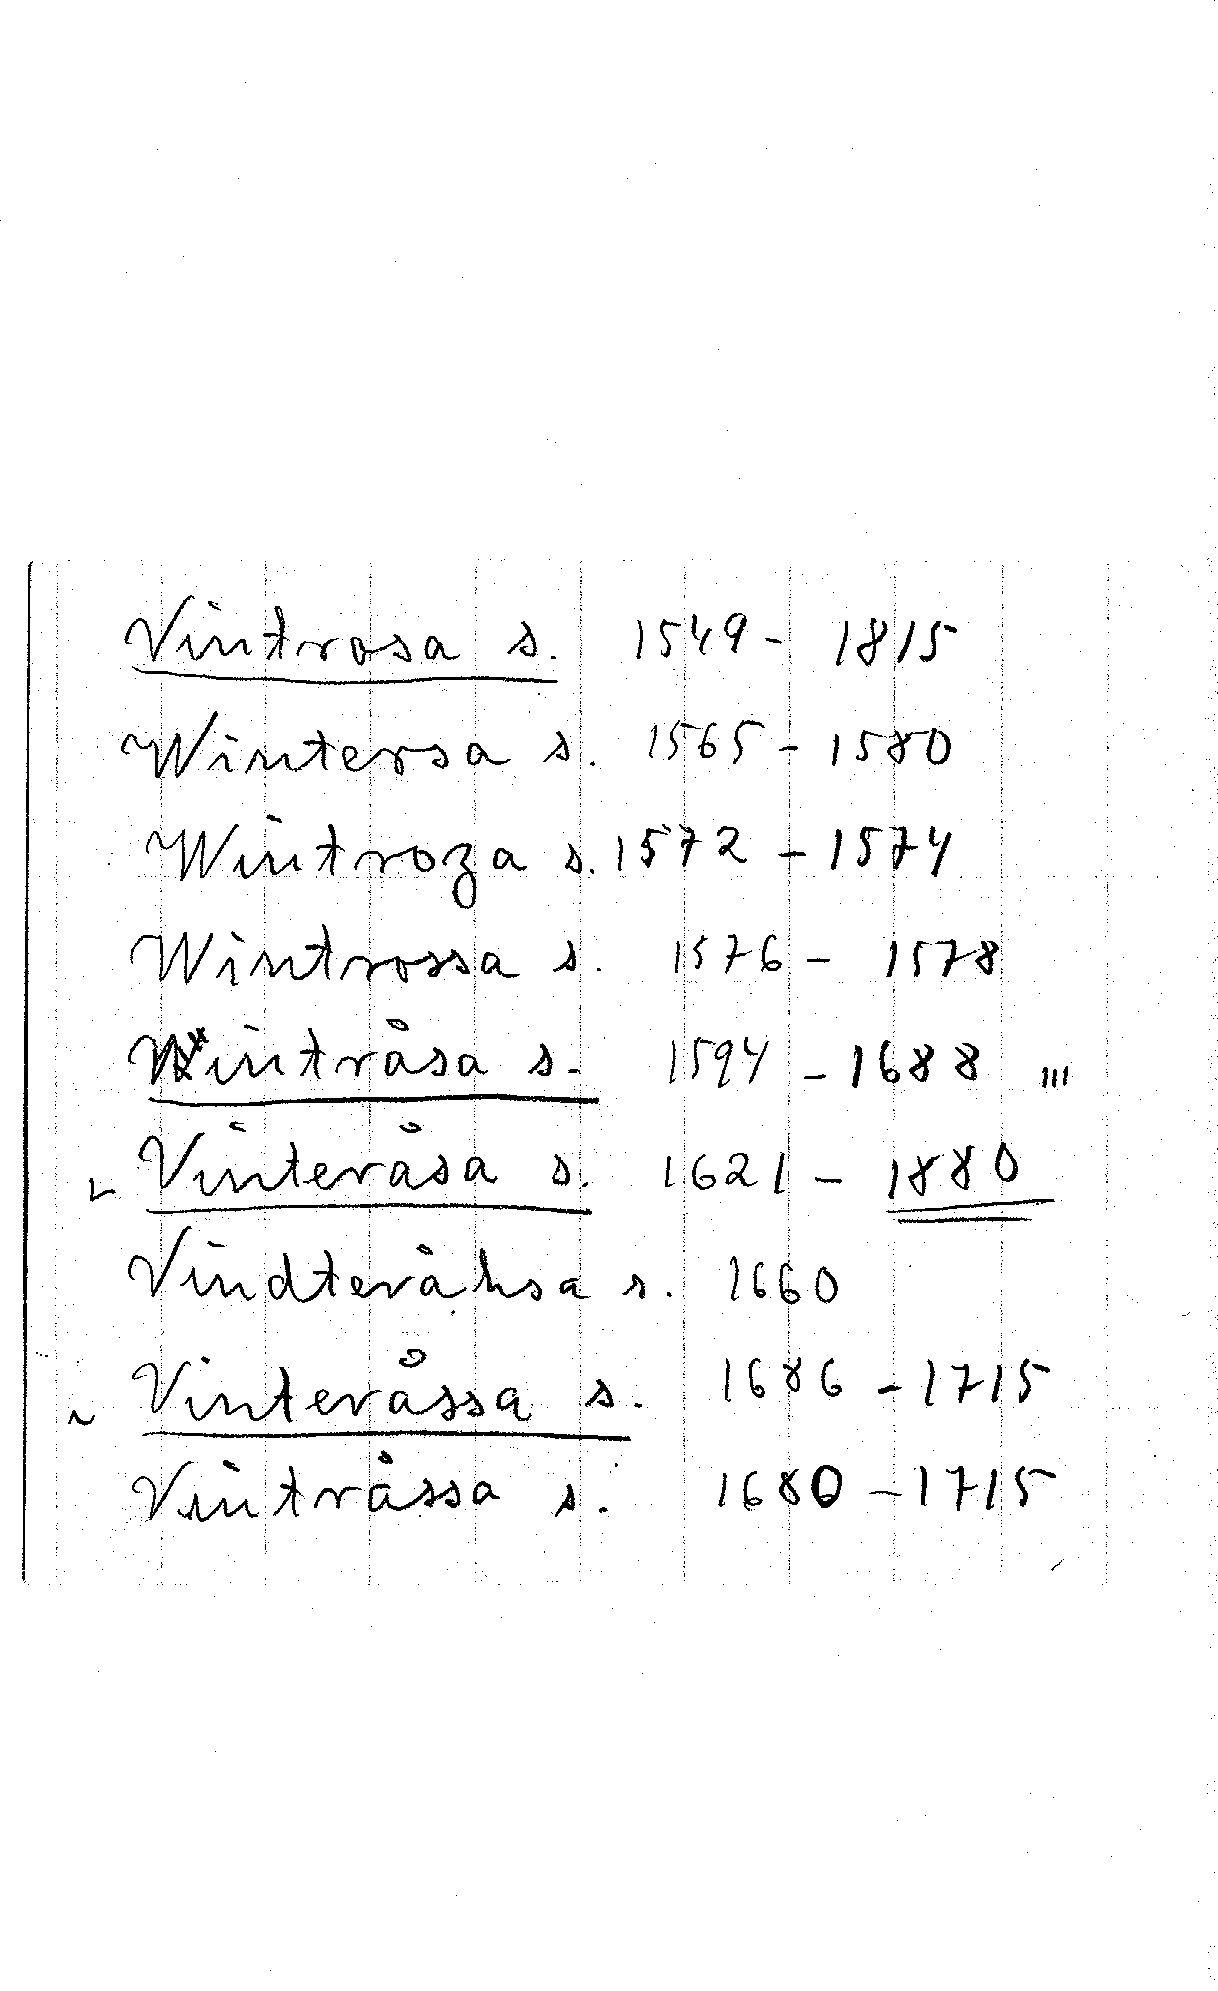 Vintrosa s. 1549 - 1815
Wintersa s. 1565 - 1580
Wintroza s. 1572 - 1574
Wintrossa s. 1576 - 1578
Vintråsa s. 1594 - 1688 '''
Vinteråsa s. 1621 - 1880
Vindteråhsa s. 1660
Vinteråssa s. 1686 - 1715
Vintråssa s. 1680 - 1715